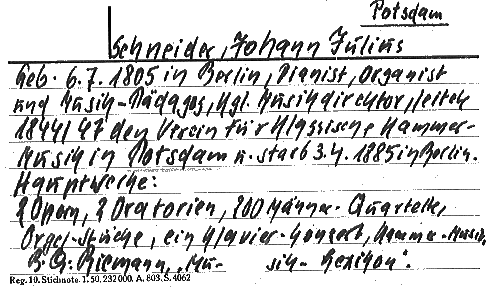 Potsdam
Schneider, Johann Julius
Geb. 6.7.1805 in Berlin, Pianist, Organist
und Musik-Pädagog, Kgl. Musikdirektor, leitete
1844/47 den Verein für klassische Kammer-
Musik in Potsdam u. starb 3.4.1885 in Berlin.
Hauptwerke:
2 Opern, 2 Oratorien, 200 Männer-Quartette,
Orgel-Stücke, ein Klavier-Konzert, Kammer-Musik,
Riemann, "Mu- sik-Lexikon".
Reg. 10. Stichnote. T. 50, 232000. A. 803. S. 4062